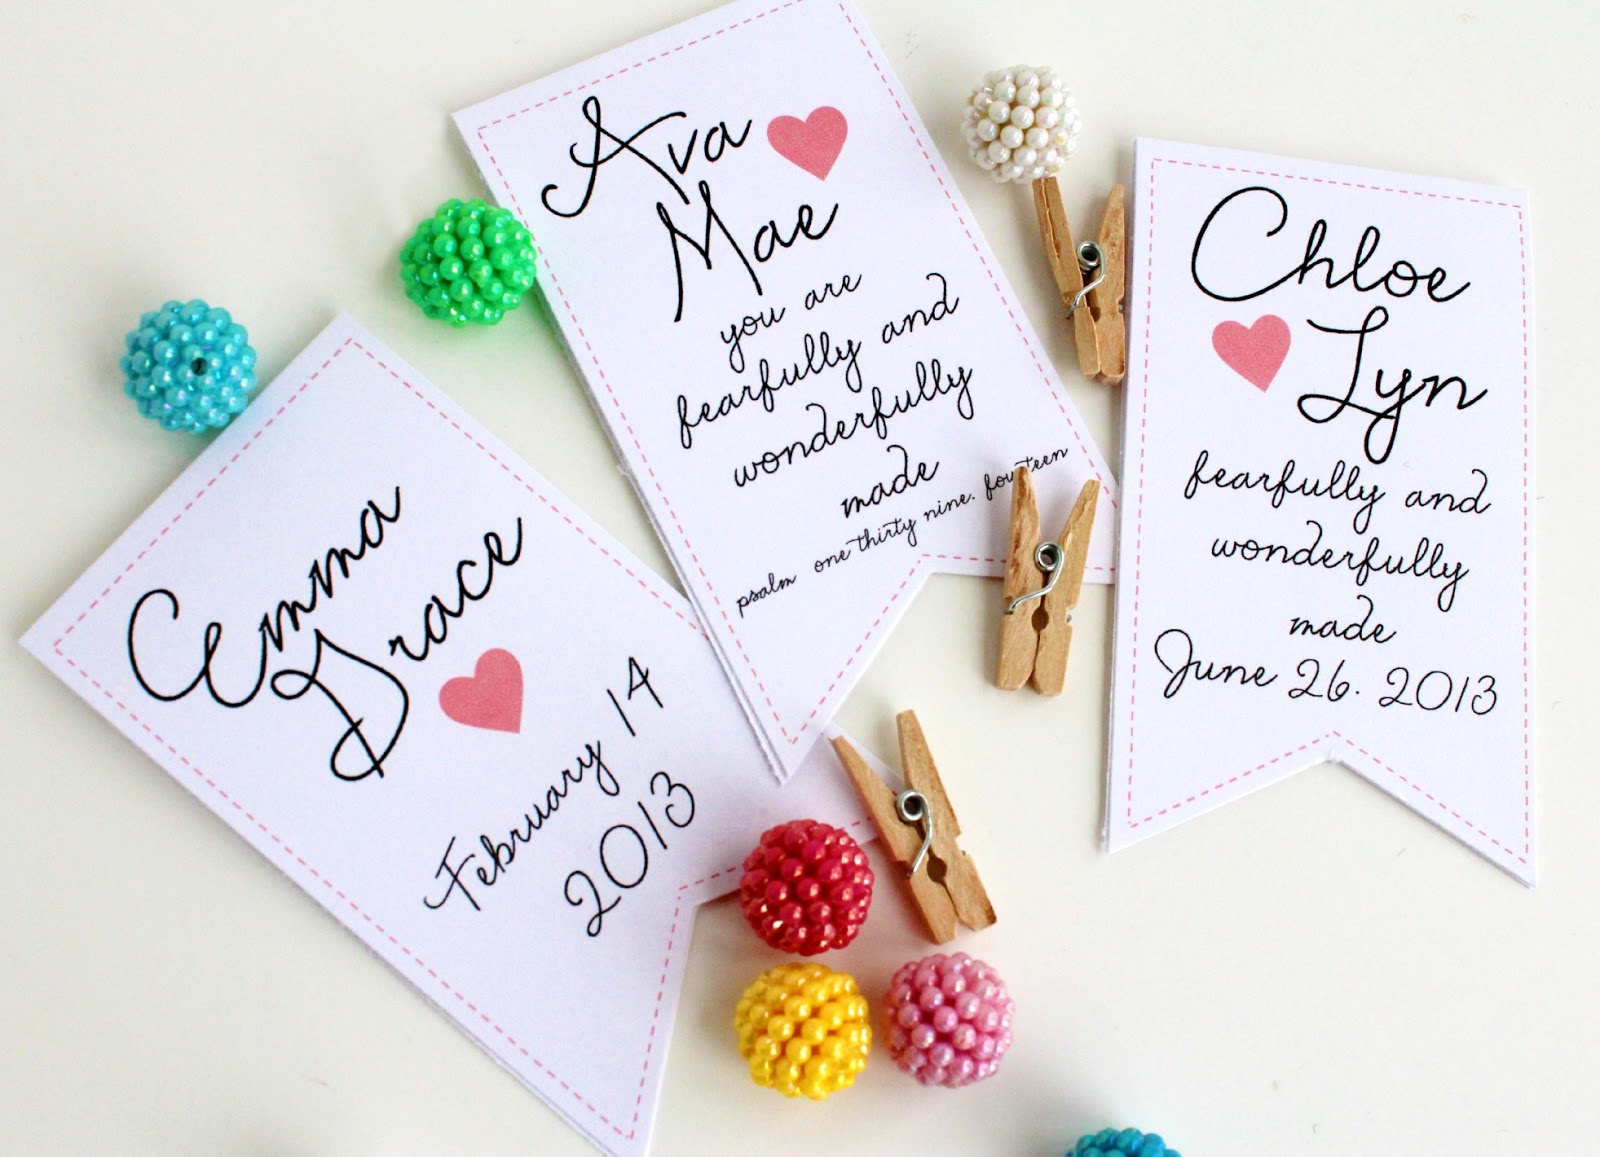 Emma
Grace
February 14
2013
Ava
Mae
you are
fearfully and
wonderfully
made
psalm one thirty nine. fourteen
Chloe
Lyn
fearfully and
wonderfully
made
June 26. 2013